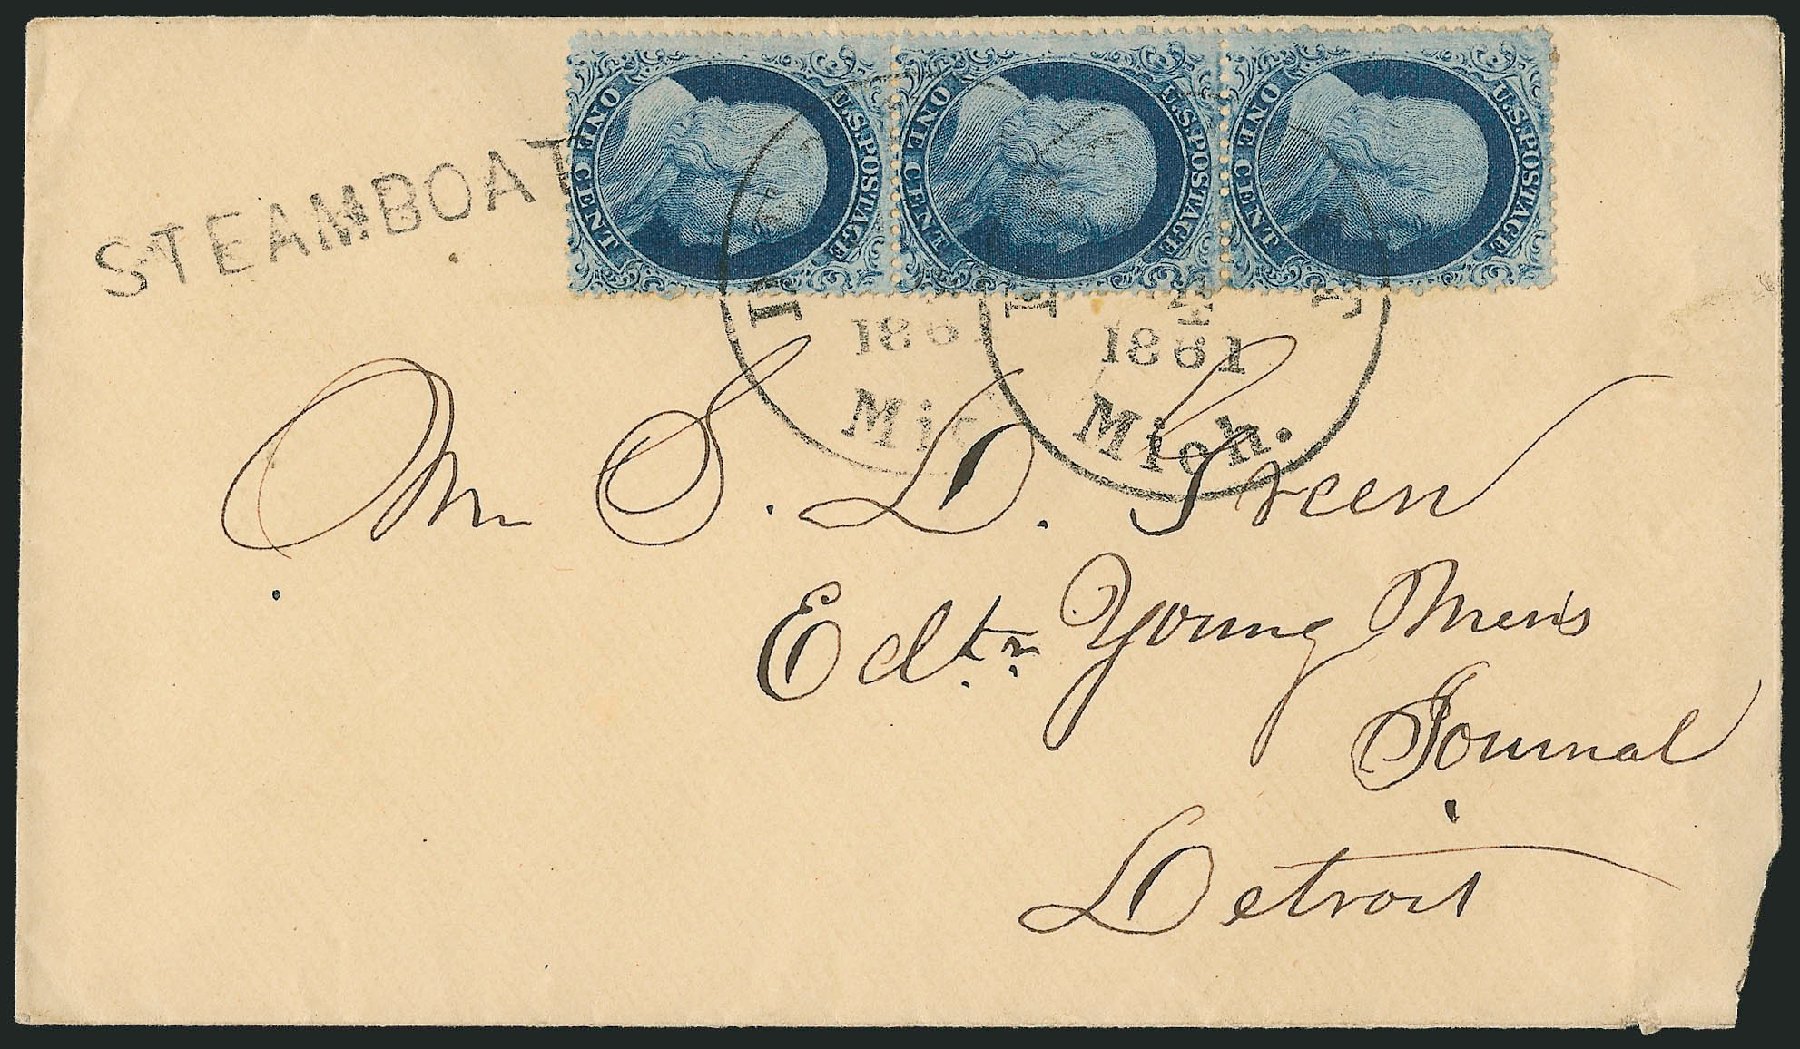 STEAMBOAT
U.S. POSTAGE ONE CENT
U.S. POSTAGE ONE CENT
U.S. POSTAGE ONE CENT
1861
Mich.
1861
Mich.
Mr S. D. Green
Edtr. Young Men's
Journal
Detroit